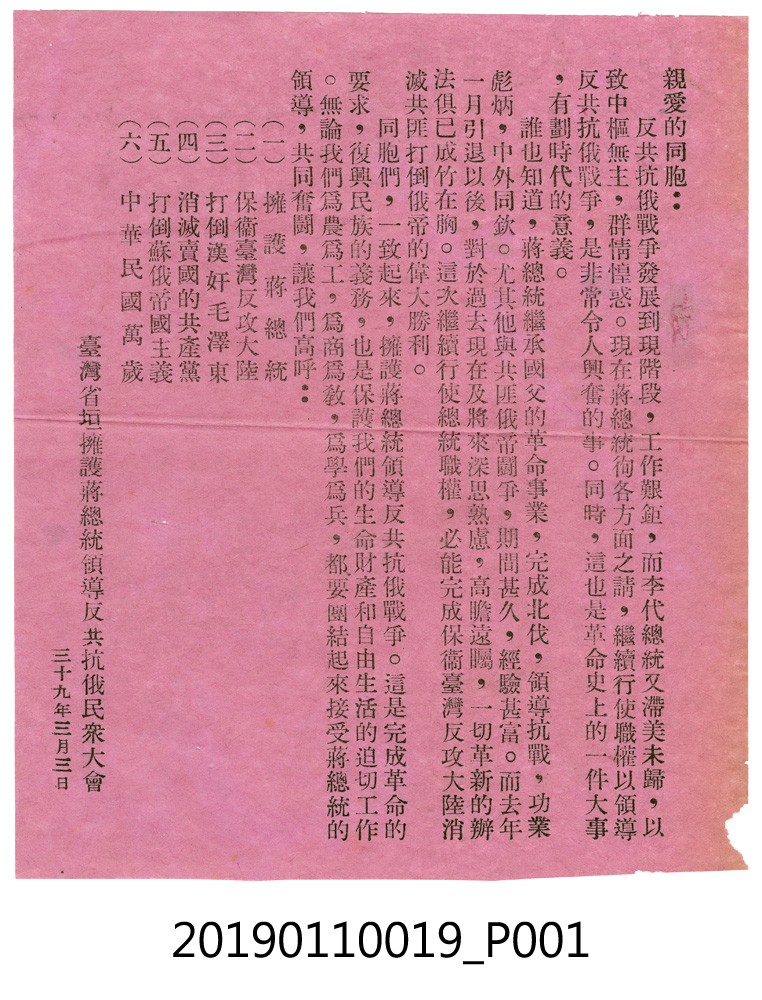 親愛的同胞：
反共抗俄戰爭發展到現階段，工作艱鉅，而李代總統又滯美未歸，以
致中樞無主，群情惶惑。現在蔣總統徇各方面之請，繼續行使職權以領導
反共抗俄戰爭，是非常令人興奮的事。同時，這也是革命史上的一件大事
，有劃時代的意義。
誰也知道，蔣總統繼承國父的革命事業，完成北伐，領導抗戰，功業
彪炳，中外同欽。尤其他與共匪俄帝鬪爭，期間甚久，經驗甚富。而去年
一月引退以後，對於過去現在及將來深思熟慮，高瞻遠矚，一切革新的辦
法俱已成竹在胸。這次繼續行使總統職權，必能完成保衞臺灣反攻大陸消
滅共匪打倒俄帝的偉大勝利。
同胞們，一致起來，擁護蔣總統領導反共抗俄戰爭。這是完成革命的
要求，復興民族的義務，也是保護我們的生命財產和自由生活的迫切工作
。無論我們爲農爲工，爲商爲教，爲學爲兵，都要團結起來接受蔣總統的
領導，共同奮鬪，讓我們高呼：
（一）擁護蔣總統
（二）保衞臺灣反攻大陸
（三）打倒漢奸毛澤東
（四）消滅賣國的共產黨
（五）打倒蘇俄帝國主義
（六）中華民國萬歲
臺灣省垣擁護蔣總統領導反共抗俄民衆大會
三十九年三月三日
20190110019_P001